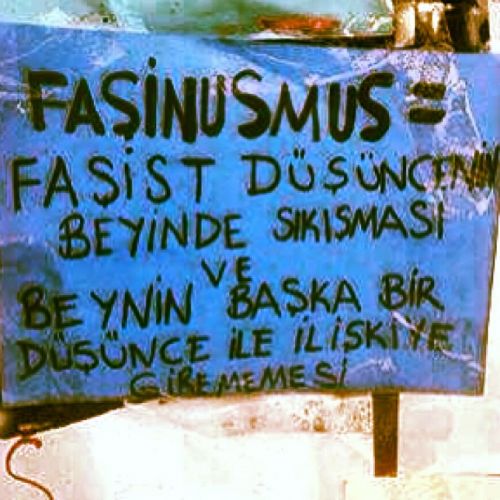 FAŞİNUSMUS =
FAŞİST DÜŞÜNCENİN
BEYİNDE SIKIŞMASI
VE
BEYNİN BAŞKA BİR
DÜŞÜNCE İLE İLİŞKİYE
GİREMEMESİ